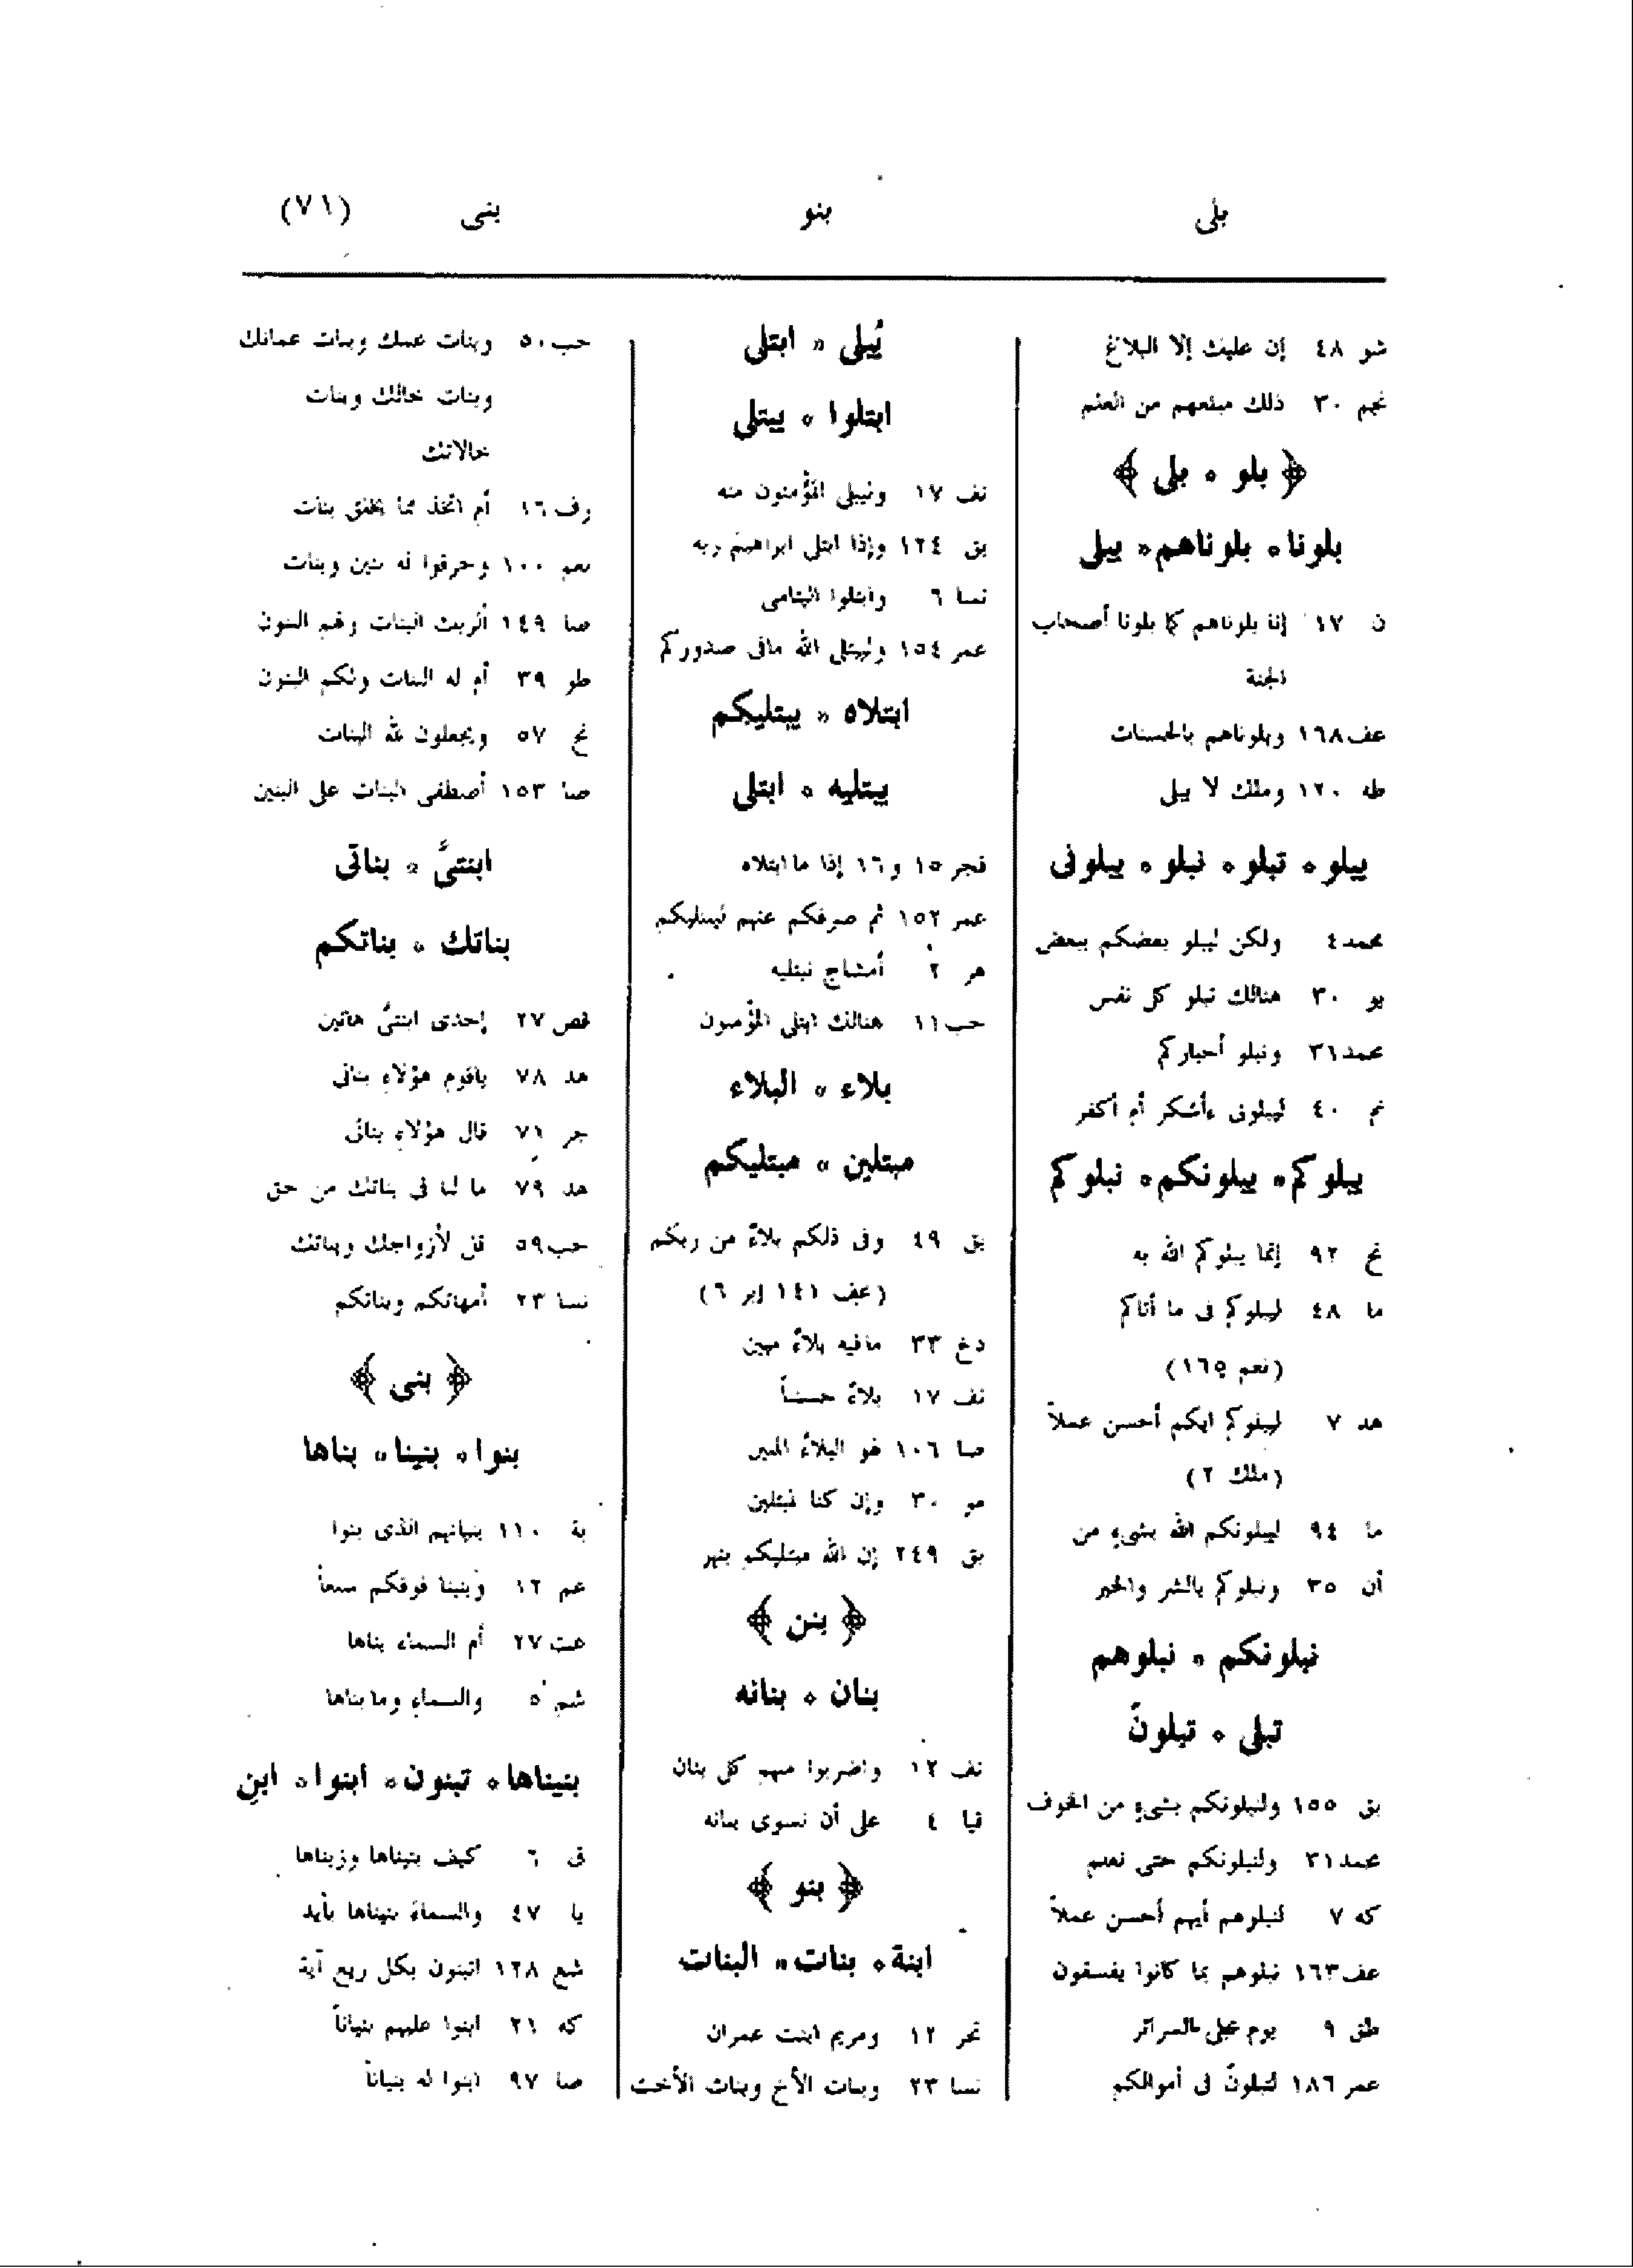 بلى بنو بنى (٧١)
شو ٤٨ إن عليك إلا البلاغ
نجم ٣٠ ذلك مبلغهم من العلم
﴿ بلو ۰ بلى ﴾
بلونا ۰ بلوناهم ۰ يبلى
ن ١٧ إنا بلوناهم كما بلونا أصحاب
الجنة
عف ١٦٨ وبلوناهم بالحسنات
طه ١٢٠ وملك لا يبلى
يبلو ۰ تبلو ۰ نبلو ۰ يبلونى
محمد ٤ ولكن ليبلو بعضكم ببعض
يو ٣٠ هنالك تبلو كل نفس
محمد ٣١ ونبلو أخباركم
نم ٤٠ ليبلونى ءأشكر أم أكفر
يبلوكم ۰ يبلونكم ۰ نبلوكم
نح ٩٢ إنما يبلوكم الله به
ما ٤٨ ليبلوكم فى ما أتاكم
(نعم ١٦٥)
هد ٧ ليبلوكم ايكم أحسن عملاً
(ملك ٢)
ما ٩٤ ليبلونكم الله بشىءٍ من
أن ٣٥ ونبلوكم بالشر والخير
نبلونكم ۰ نبلوهم
تبلى ۰ تبلونّ
بق ١٥٥ ولنبلونكم بشىءٍ من الخوف
محمد ٣١ ولنبلونكم حتى نعلم
كه ٧ لنبلوهم أيهم أحسن عملاً
عف ١٦٣ نبلوهم بما كانوا يفسقون
طق ٩ يوم تبلى السرائر
عمر ١٨٦ لتبلونّ فى أموالكم
يُبلى ۰ ابتلى
ابتلوا ۰ يبتلى
نف ١٧ وليبلى المؤمنون منه
بق ١٢٤ وإذا ابتلى ابراهيمَ ربه
نسا ٦ وابتلوا اليتامى
عمر ١٥٤ وليبتلى الله مافى صدوركم
ابتلاه ۰ يبتليكم
يبتليه ۰ ابتلى
فجر ١٥ و ١٦ إذا ما ابتلاه
عمر ١٥٢ ثم صرفكم عنهم ليبتليكم
هر ٢ أمشاج نبتليه
حب ١١ هنالك ابتلى المؤمنون
بلاء ۰ البلاء
مبتلين ۰ مبتليكم
بق ٤٩ وفى ذلكم بلاءٌ من ربكم
(عف ١٤١ إبر ٦)
دخ ٣٣ مافيه بلاءٌ مبين
نف ١٧ بلاءً حسناً
صا ١٠٦ لهو البلاءُ المبين
مو ٣٠ وإن كنا لمبتلين
بق ٢٤٩ إن الله مبتليكم بنهر
﴿ بنن ﴾
بنان ۰ بنانه
نف ١٢ واضربوا منهم كل بنان
قيا ٤ على أن نسوى بنانه
﴿ بنو ﴾
ابنة ۰ بنات ۰ البنات
تحر ١٢ ومريم ابنت عمران
نسا ٢٣ وبنات الأخ وبنات الأخت
حب ٥٠ وبنات عمك وبنات عماتك
وبنات خالك وبنات
خالاتك
رف ١٦ أم اتخذ مما يخلق بنات
نعم ١٠٠ وخرقوا له بنين وبنات
صا ١٤٩ ألربك البنات ولهم البنون
طو ٣٩ أم له البنات ولكم البنون
نح ٥٧ ويجعلون لله البنات
صا ١٥٣ أصطفى البنات على البنين
ابنتىَّ ۰ بناتى
بناتك ۰ بناتكم
قص ٢٧ إحدى ابنتىَّ هاتين
هد ٧٨ ياقوم هؤلاءِ بناتى
جر ٧١ قال هؤلاءِ بناتى
هد ٧٩ ما لنا فى بناتك من حق
حب ٥٩ قل لأزواجك وبناتك
نسا ٢٣ أمهاتكم وبناتكم
﴿ بنى ﴾
بنوا ۰ بنينا ۰ بناها
بة ١١٠ بنيانهم الذى بنوا
عم ١٢ وبنينا فوقكم سبعاً
عت ٢٧ أم السماء بناها
شم ٥ والسماءِ وما بناها
بنيناها ۰ تبنون ۰ ابنوا ۰ ابنِ
ق ٦ كيف بنيناها وزيناها
يا ٤٧ والسماءَ بنيناها بأيد
شع ١٢٨ اتبنون بكل ريع آية
كه ٢١ ابنوا عليهم بنياناً
صا ٩٧ ابنوا له بنياناً